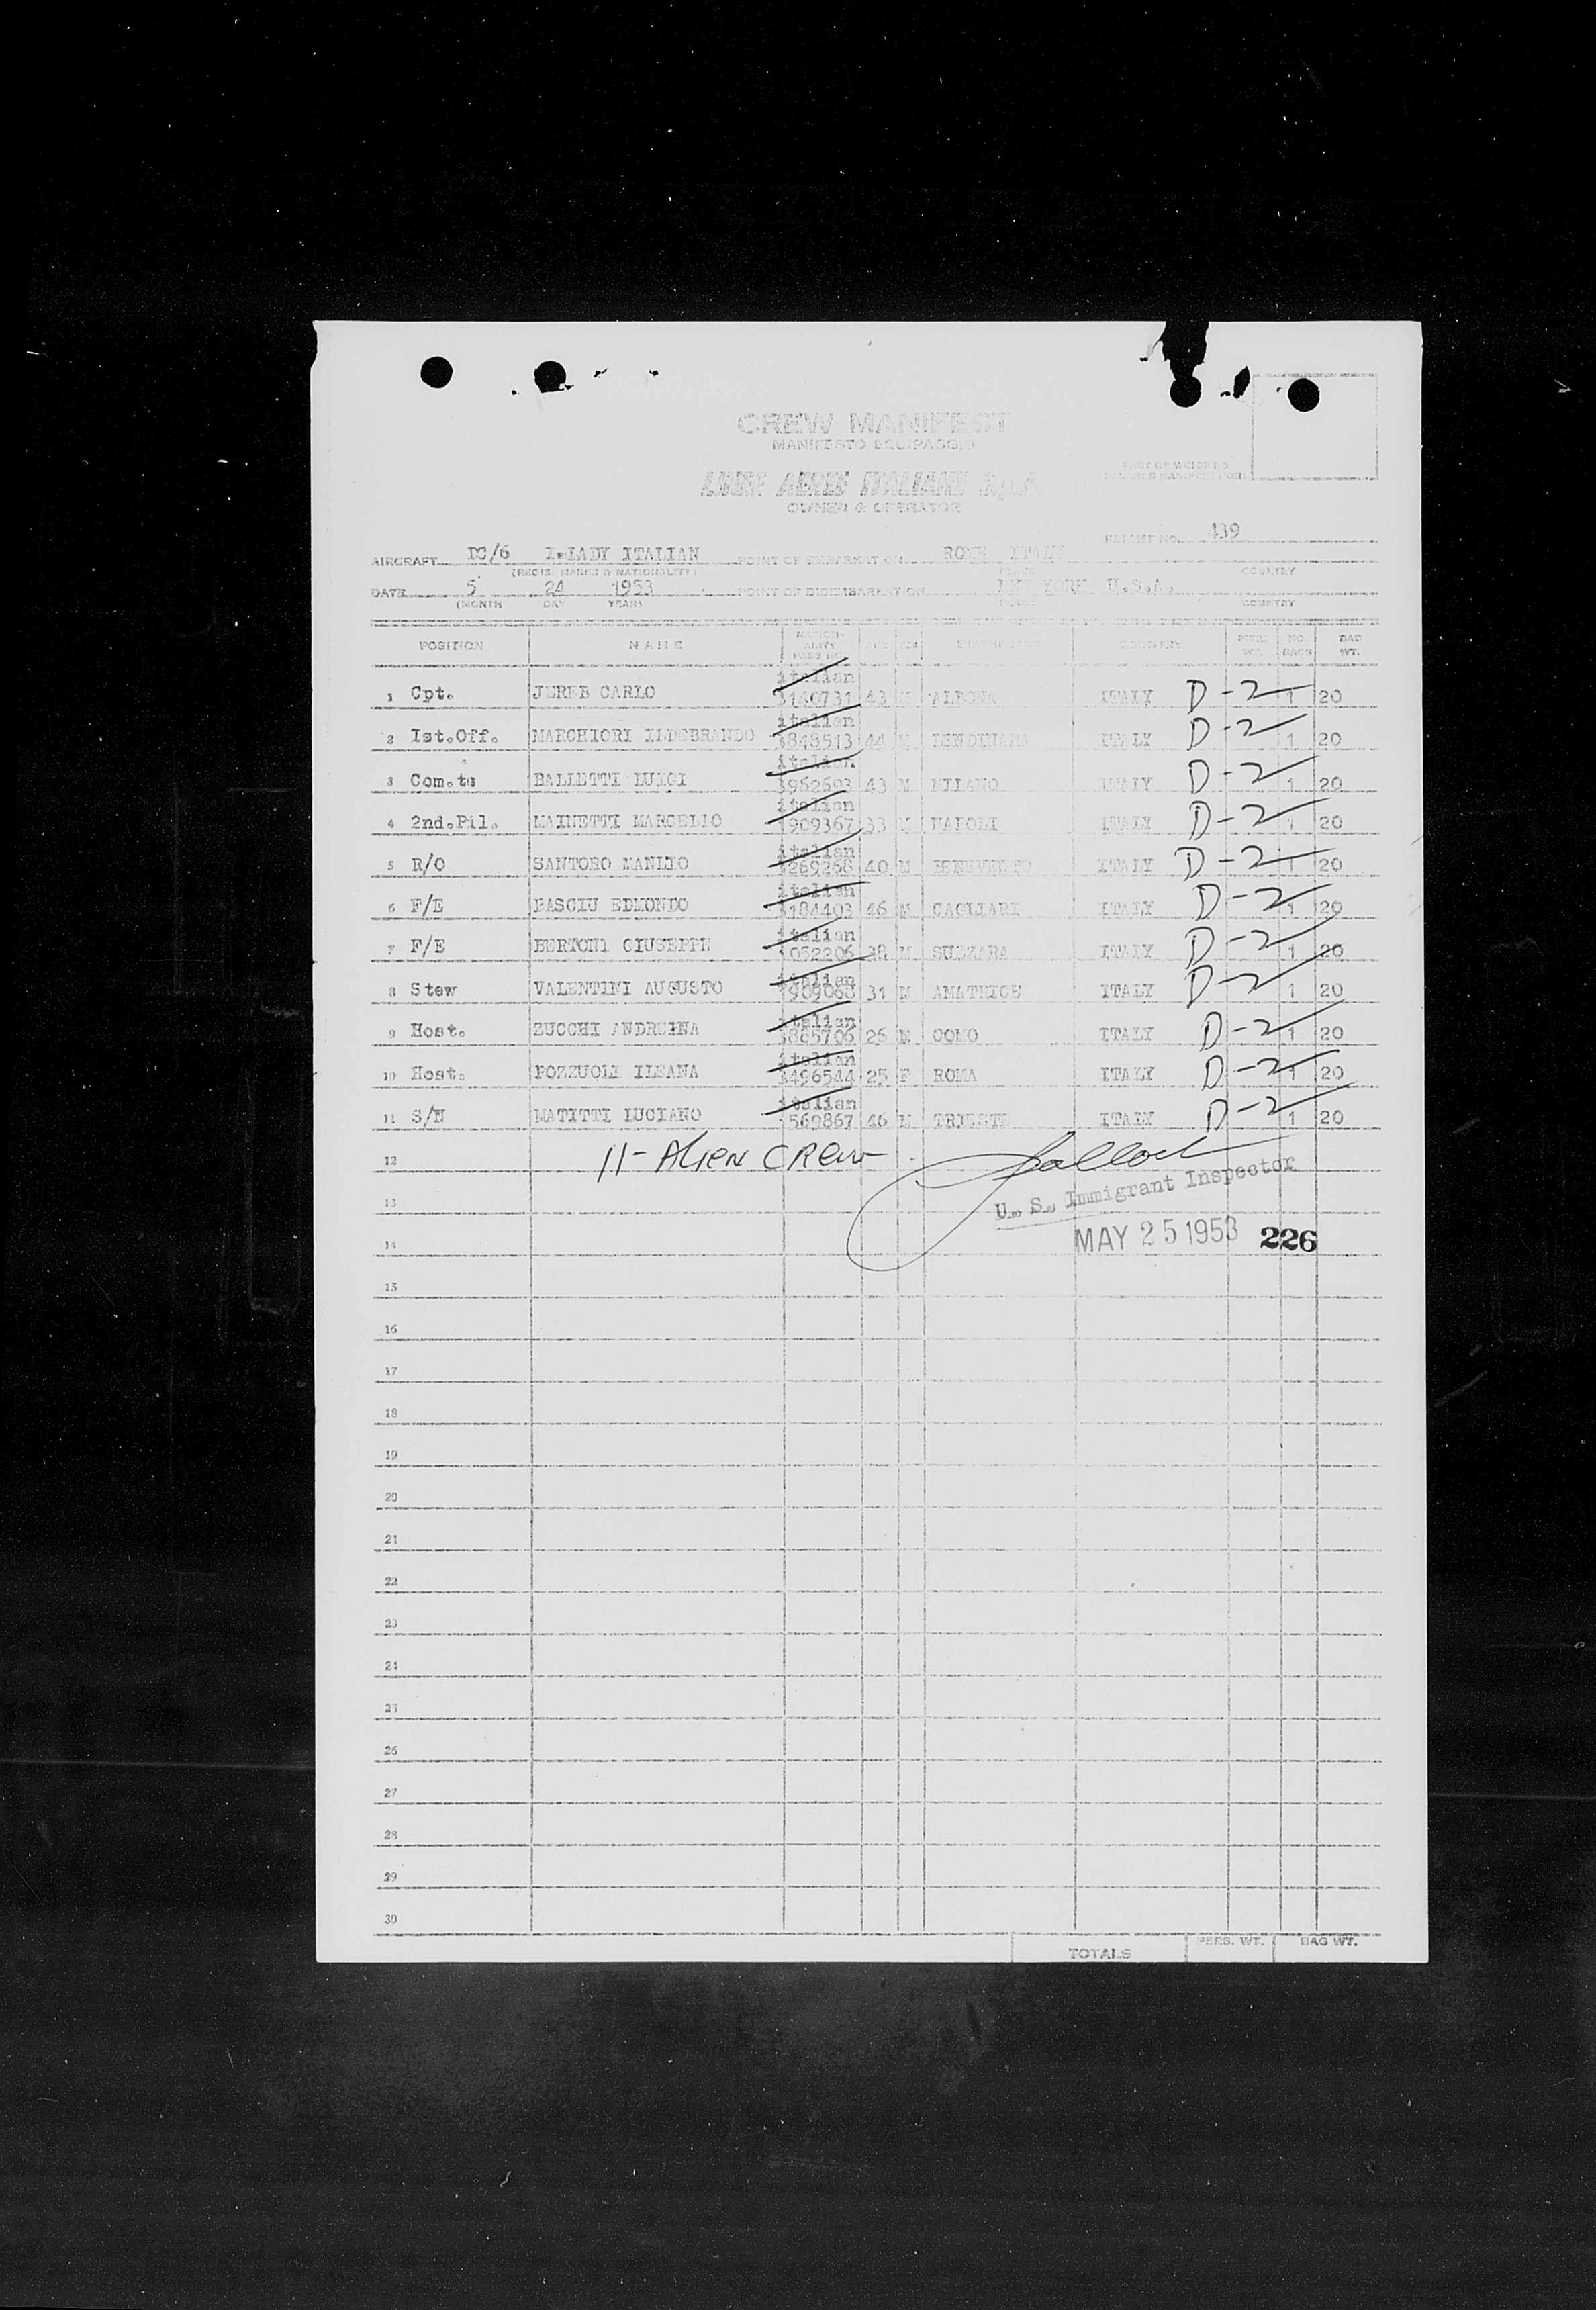 CREW MANIFEST
MANIFESTO EQUIPAGGIO
LINEE AEREE ITALIANE S.p.A.
OWNER & OPERATOR
PART OF WEIGHT &
FLIGHT NO. 439
AIRCRAFT DC/6 I-LADY ITALIAN POINT OF EMBARKATION ROME ITALY
(REGIS. MARKS & NATIONALITY) COUNTRY
DATE 5 24 1953 POINT OF DISEMBARKATION NEW YORK U.S.A.
(MONTH DAY YEAR) COUNTRY
POSITION NAME NATION-ALITY PASS NO. AGE SEX BIRTHPLACE COUNTRY PERS. WT. NO. BAGS BAG WT.
italian
1 Cpt. JEREB CARLO 3140731 43 M ALBONA ITALY D-2 1 20
italian
2 Ist.Off. MARCHIORI ILDEBRANDO 3848513 44 M LENDINARA ITALY D-2 1 20
italian
3 Com.te BALLETTI LUIGI 3962693 43 M MILANO ITALY D-2 1 20
italian
4 2nd.Pil. MAINETTI MARCELLO 909367 33 M NAPOLI ITALY D-2 1 20
italian
5 R/O SANTORO MANLIO 269268 40 M BENEVENTO ITALY D-2 1 20
italian
6 F/E BASCIU EDMONDO 184403 46 M CAGLIARI ITALY D-2 1 20
italian
7 F/E BERTONI GIUSEPPE 052206 38 M SUZZARA ITALY D-2 1 20
italian
8 Stew VALENTINI AUGUSTO 909068 31 M AMATRICE ITALY D-2 1 20
italian
9 Host. ZUCCHI ANDREINA 3865706 26 M COMO ITALY D-2 1 20
italian
10 Host. POZZUOLI ILEANA 3496544 25 F ROMA ITALY D-2 1 20
italian
11 S/N MATITTI LUCIANO 569867 46 M TRIESTE ITALY D-2 1 20
12 11- ALIEN CREW
13 U. S. Immigrant Inspector
14 MAY 25 1953 226
15
16
17
18
19
20
21
22
23
24
25
26
27
28
29
30
TOTALS PERS. WT. BAG WT.